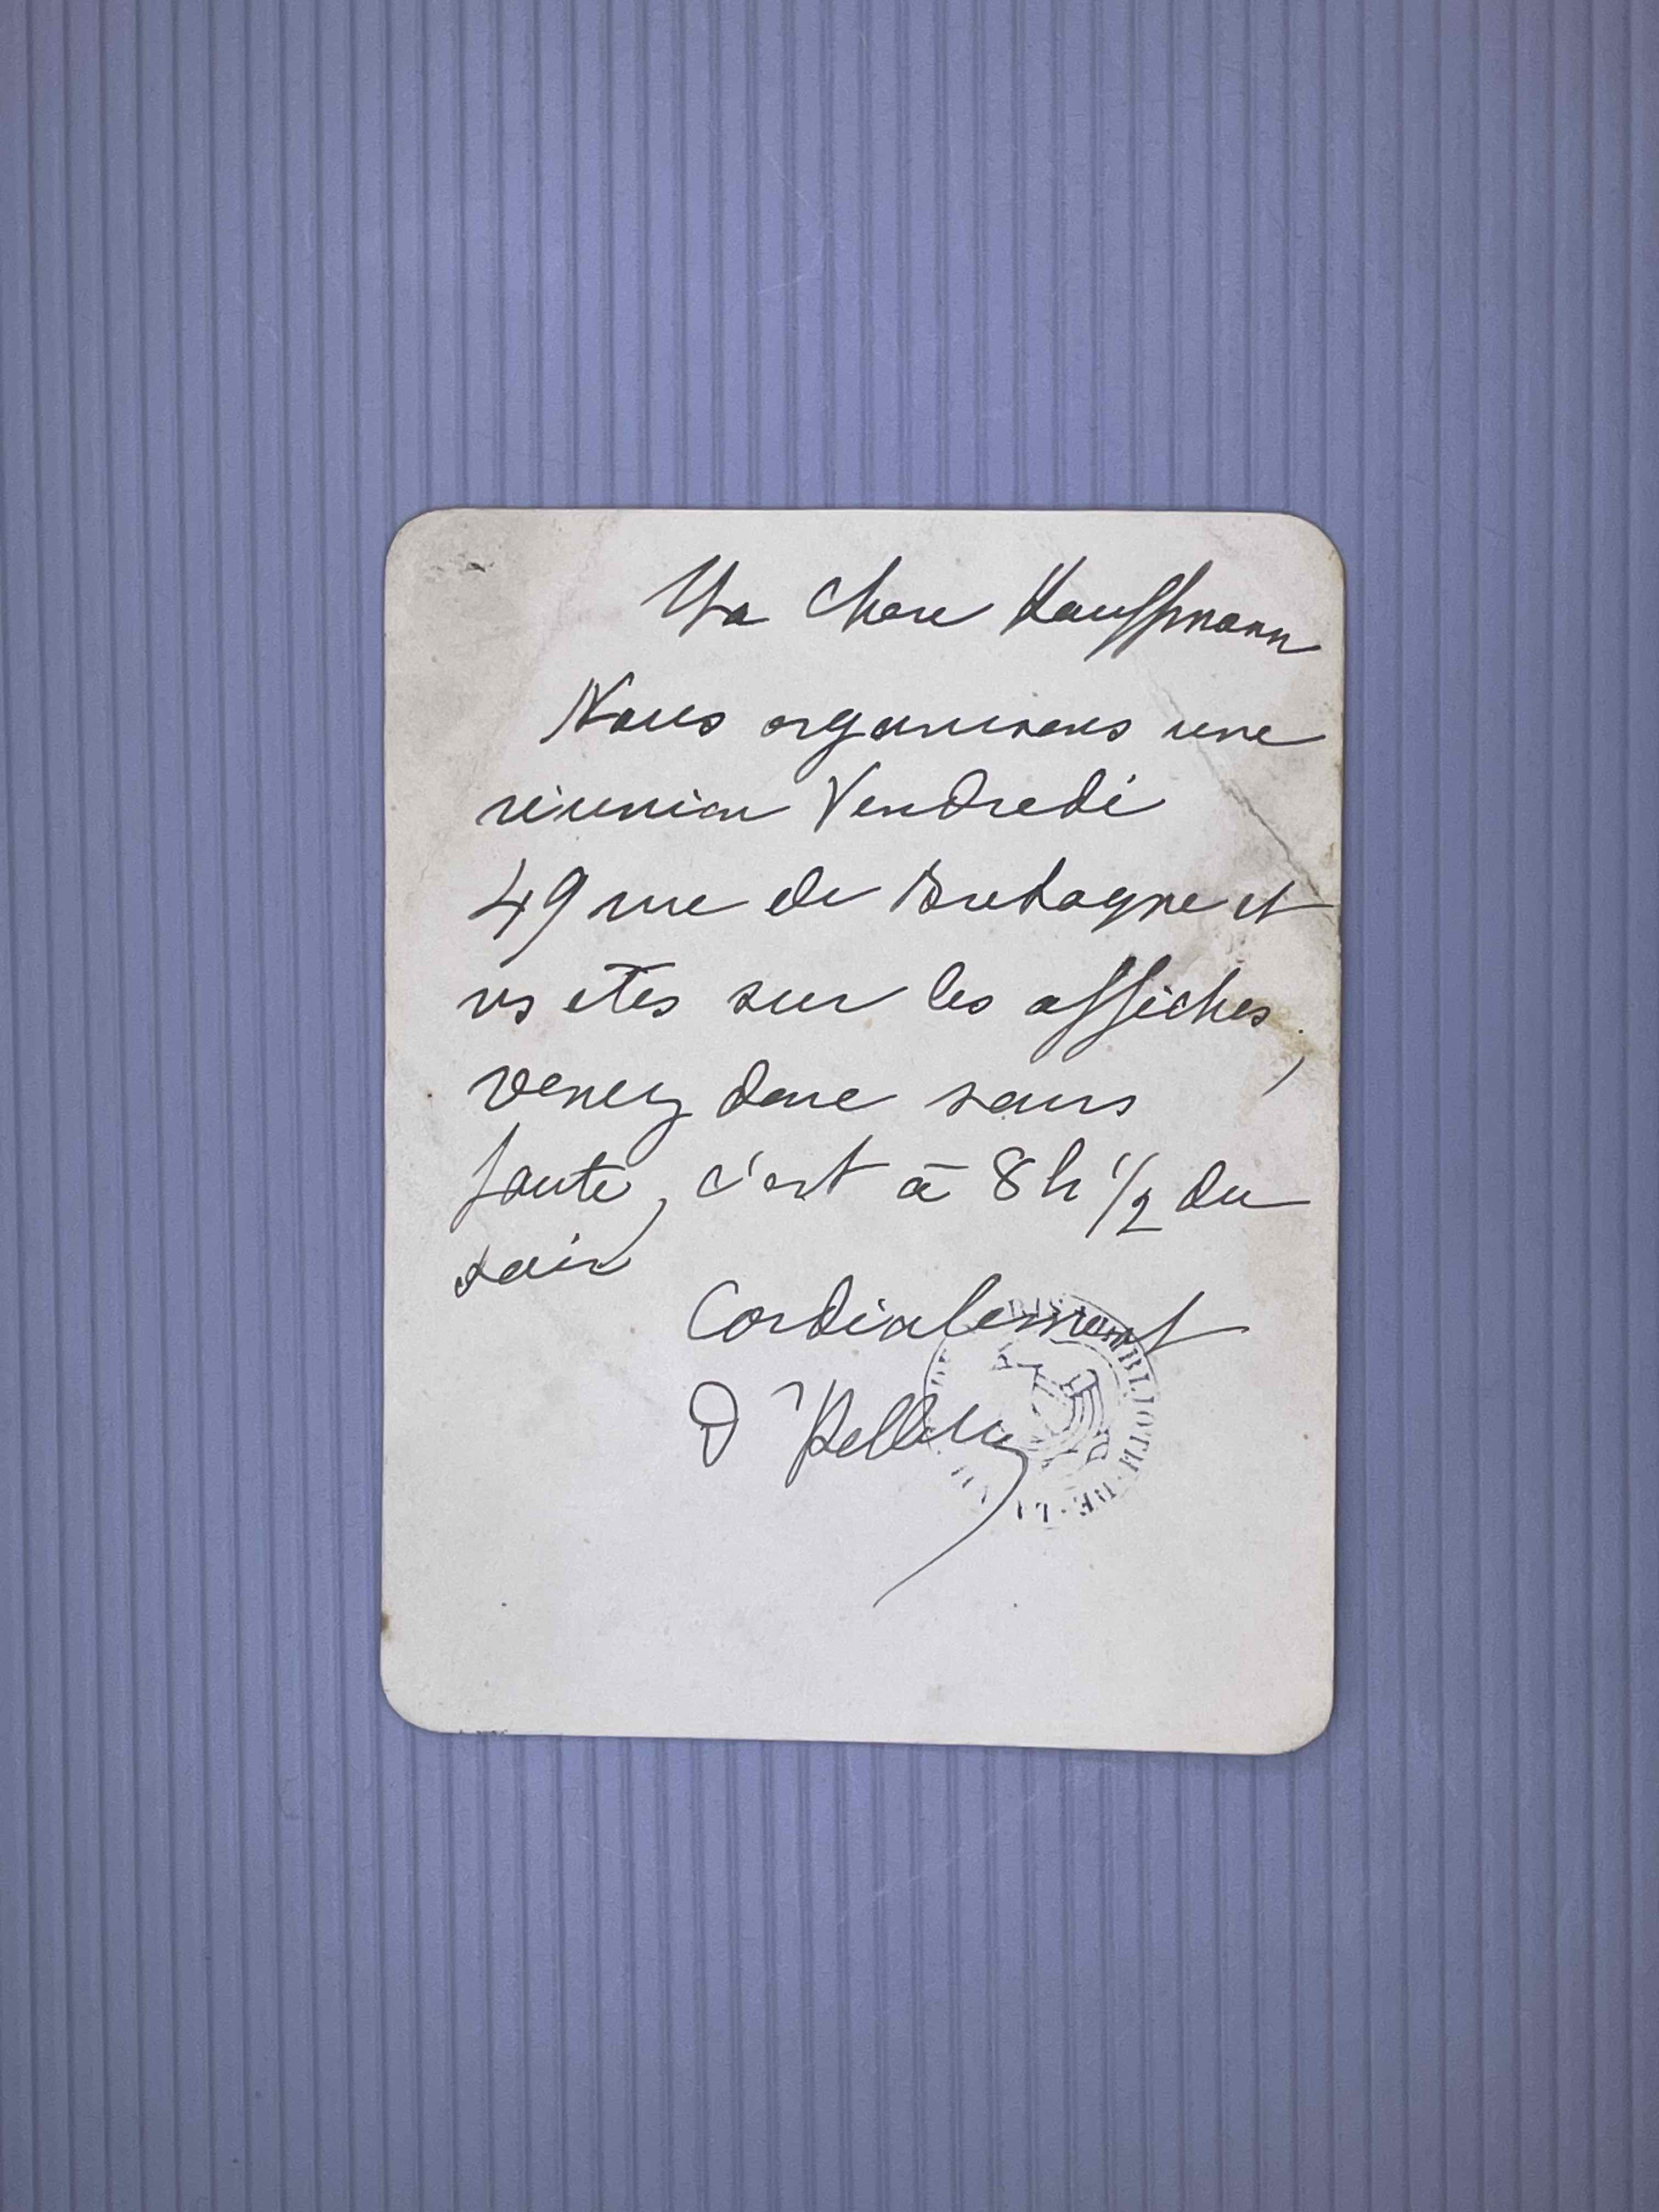 Ma Chere Kauffmann
Nous organisons une
réunion Vendredi
49 rue de Bretagne et
vs etes sur les affiches,
venez donc sans
faute, c'est à 8h 1/2 du
soir
Cordialement
Dr Pelletier
BIBLIOTH · DE · LA · VIL